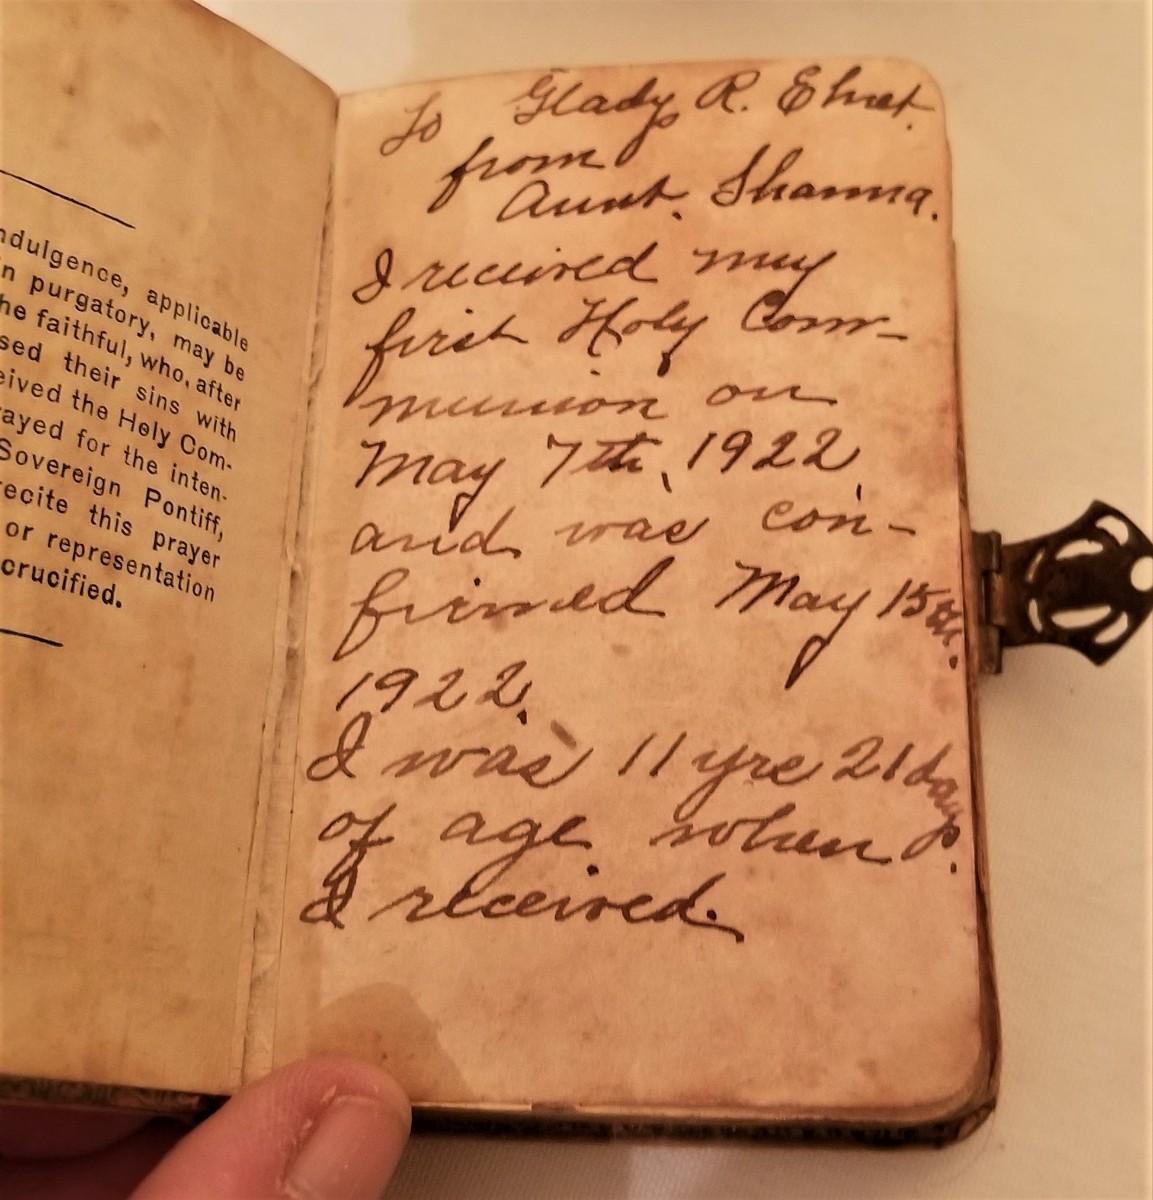 ndulgence, applicable
n purgatory, may be
he faithful, who, after
sed their sins with
eived the Holy Com-
ayed for the inten-
Sovereign Pontiff,
ecite this prayer
or representation
crucified.
To Gladys R. Ehret.
from
Aunt. Shanna.
I received my
first Holy Com-
munion on
May 7th, 1922,
and was con-
firmed May 15th.
1922.
I was 11 yrs 21 days.
of age when
I received.